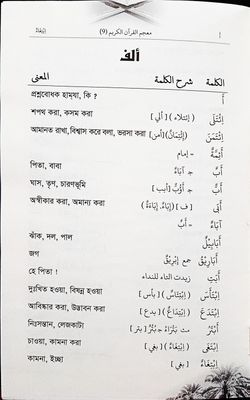 أ معجم القرآن الكريم (9) إِبْتِغَاءٌ
ألف
الكلمة شرح الكلمة المعنى
أَ প্রশ্নবোধক হাম্‌যা, কি ?
اِئْتَلَى (اِئْتِلاء) [ ألي ] শপথ করা, কসম করা
اِئْتَمَنَ (اِئْتِمَانٌ) [أمن] আমানত রাখা,বিশ্বাস করে বলা, ভরসা করা
أَئِمَّةٌ - إمام
أَبٌ جـ آبَاءٌ পিতা, বাবা
أَبٌّ جـ أَؤُبٌّ [ أبب ] ঘাস, তৃণ, চারণভূমি
أَبَى ( ف ) [إِبَاءً، إِبَاءَةً] অস্বীকার করা, অমান্য করা
آبَاءٌ - أَبٌ
أَبَابِيْلُ ঝাঁক, দল, পাল
أَبَارِيْقُ جمع إِبْرِيْقٌ জগ
أَبَتِ زيدت التاء للنداء হে পিতা !
اِبْتَأَسَ (اِبْتِئَاسٌ) [ بأس ] দুঃখিত হওয়া, বিষন্ন হওয়া
اِبْتَدَعَ (اِبْتِدَاعٌ) [ بدع ] আবিষ্কার করা, উদ্ভাবন করা
أَبْتَرُ مث بَتْرَاءُ جـ بُتْرٌ [ بتر ] নিঃসন্তান, লেজকাটা
اِبْتَغَى (اِبْتِغَاءٌ) [ بغي ] চাওয়া, কামনা করা
اِبْتِغَاءٌ [ بغي ] কামনা, ইচ্ছা